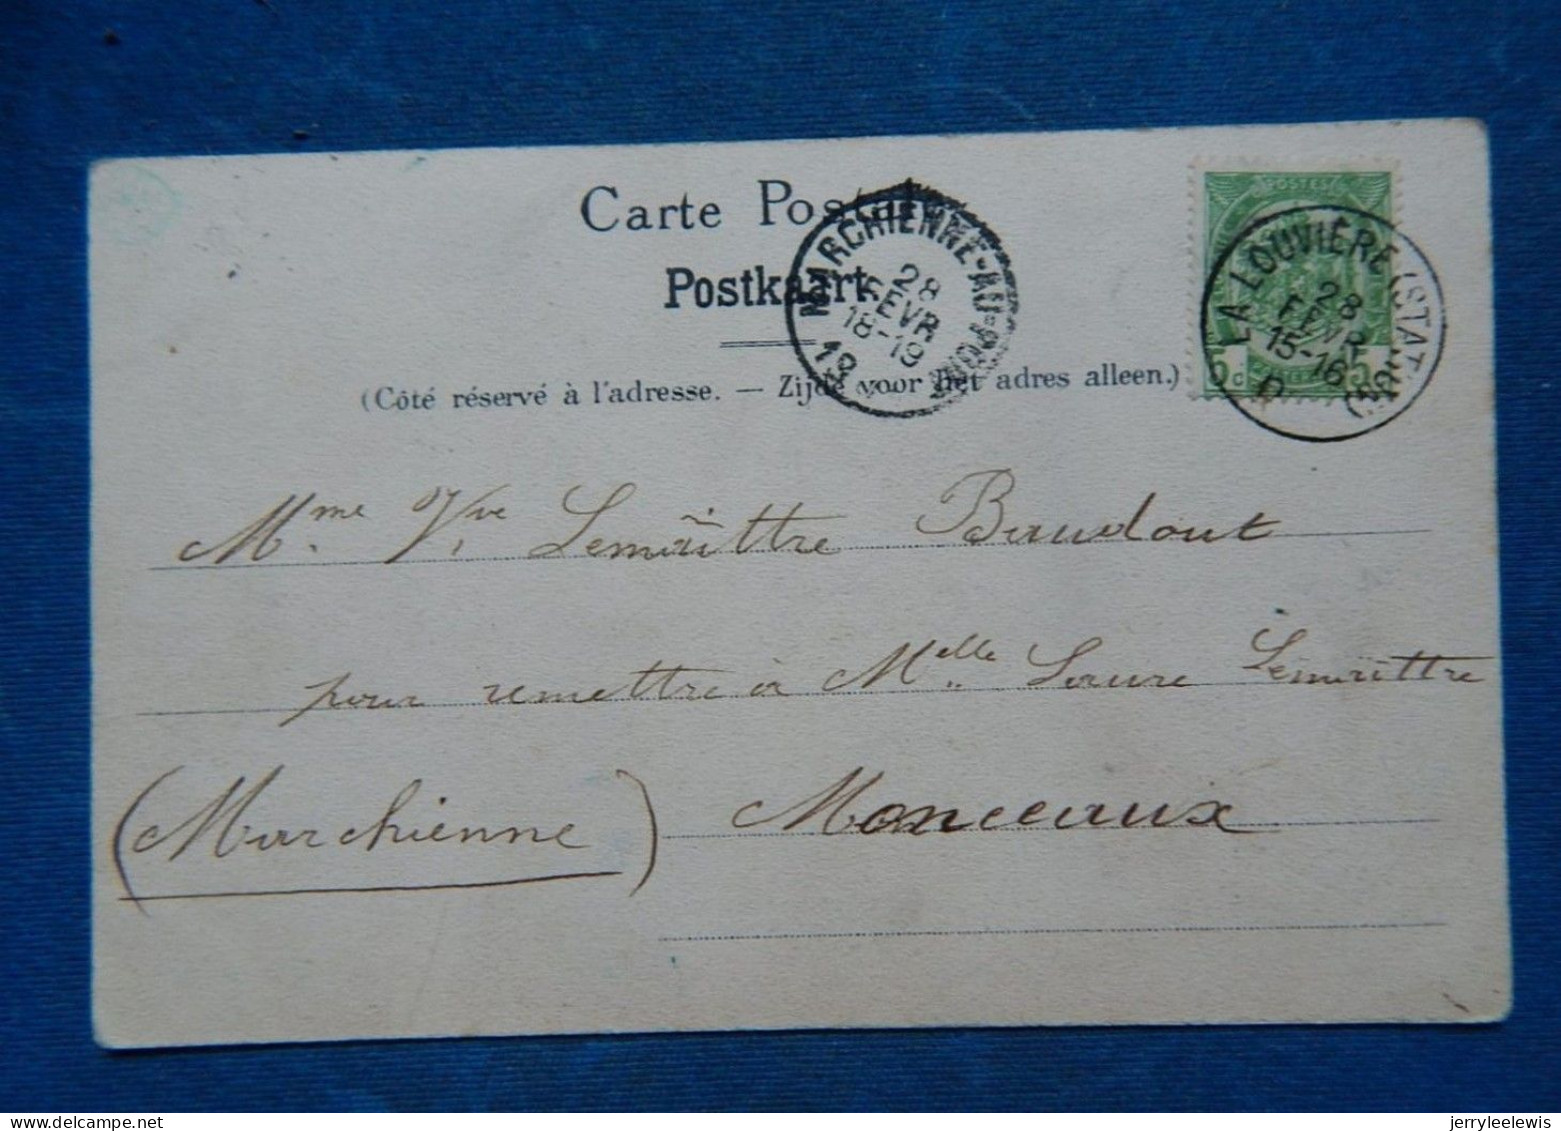 Carte Postale
Postkaart.
(Côté réservé à l'adresse. — Zijde voor het adres alleen.)
MARCHIENNE-AU-PONT
28
FEVR
18-19
POSTES
5 c 5
LA LOUVIÈRE (STATION)
28
FEVR
15-16
Mme. Vve
Baudout
pour remettre à Melle. Laure
(Marchienne) Monceaux
jerryleelewis